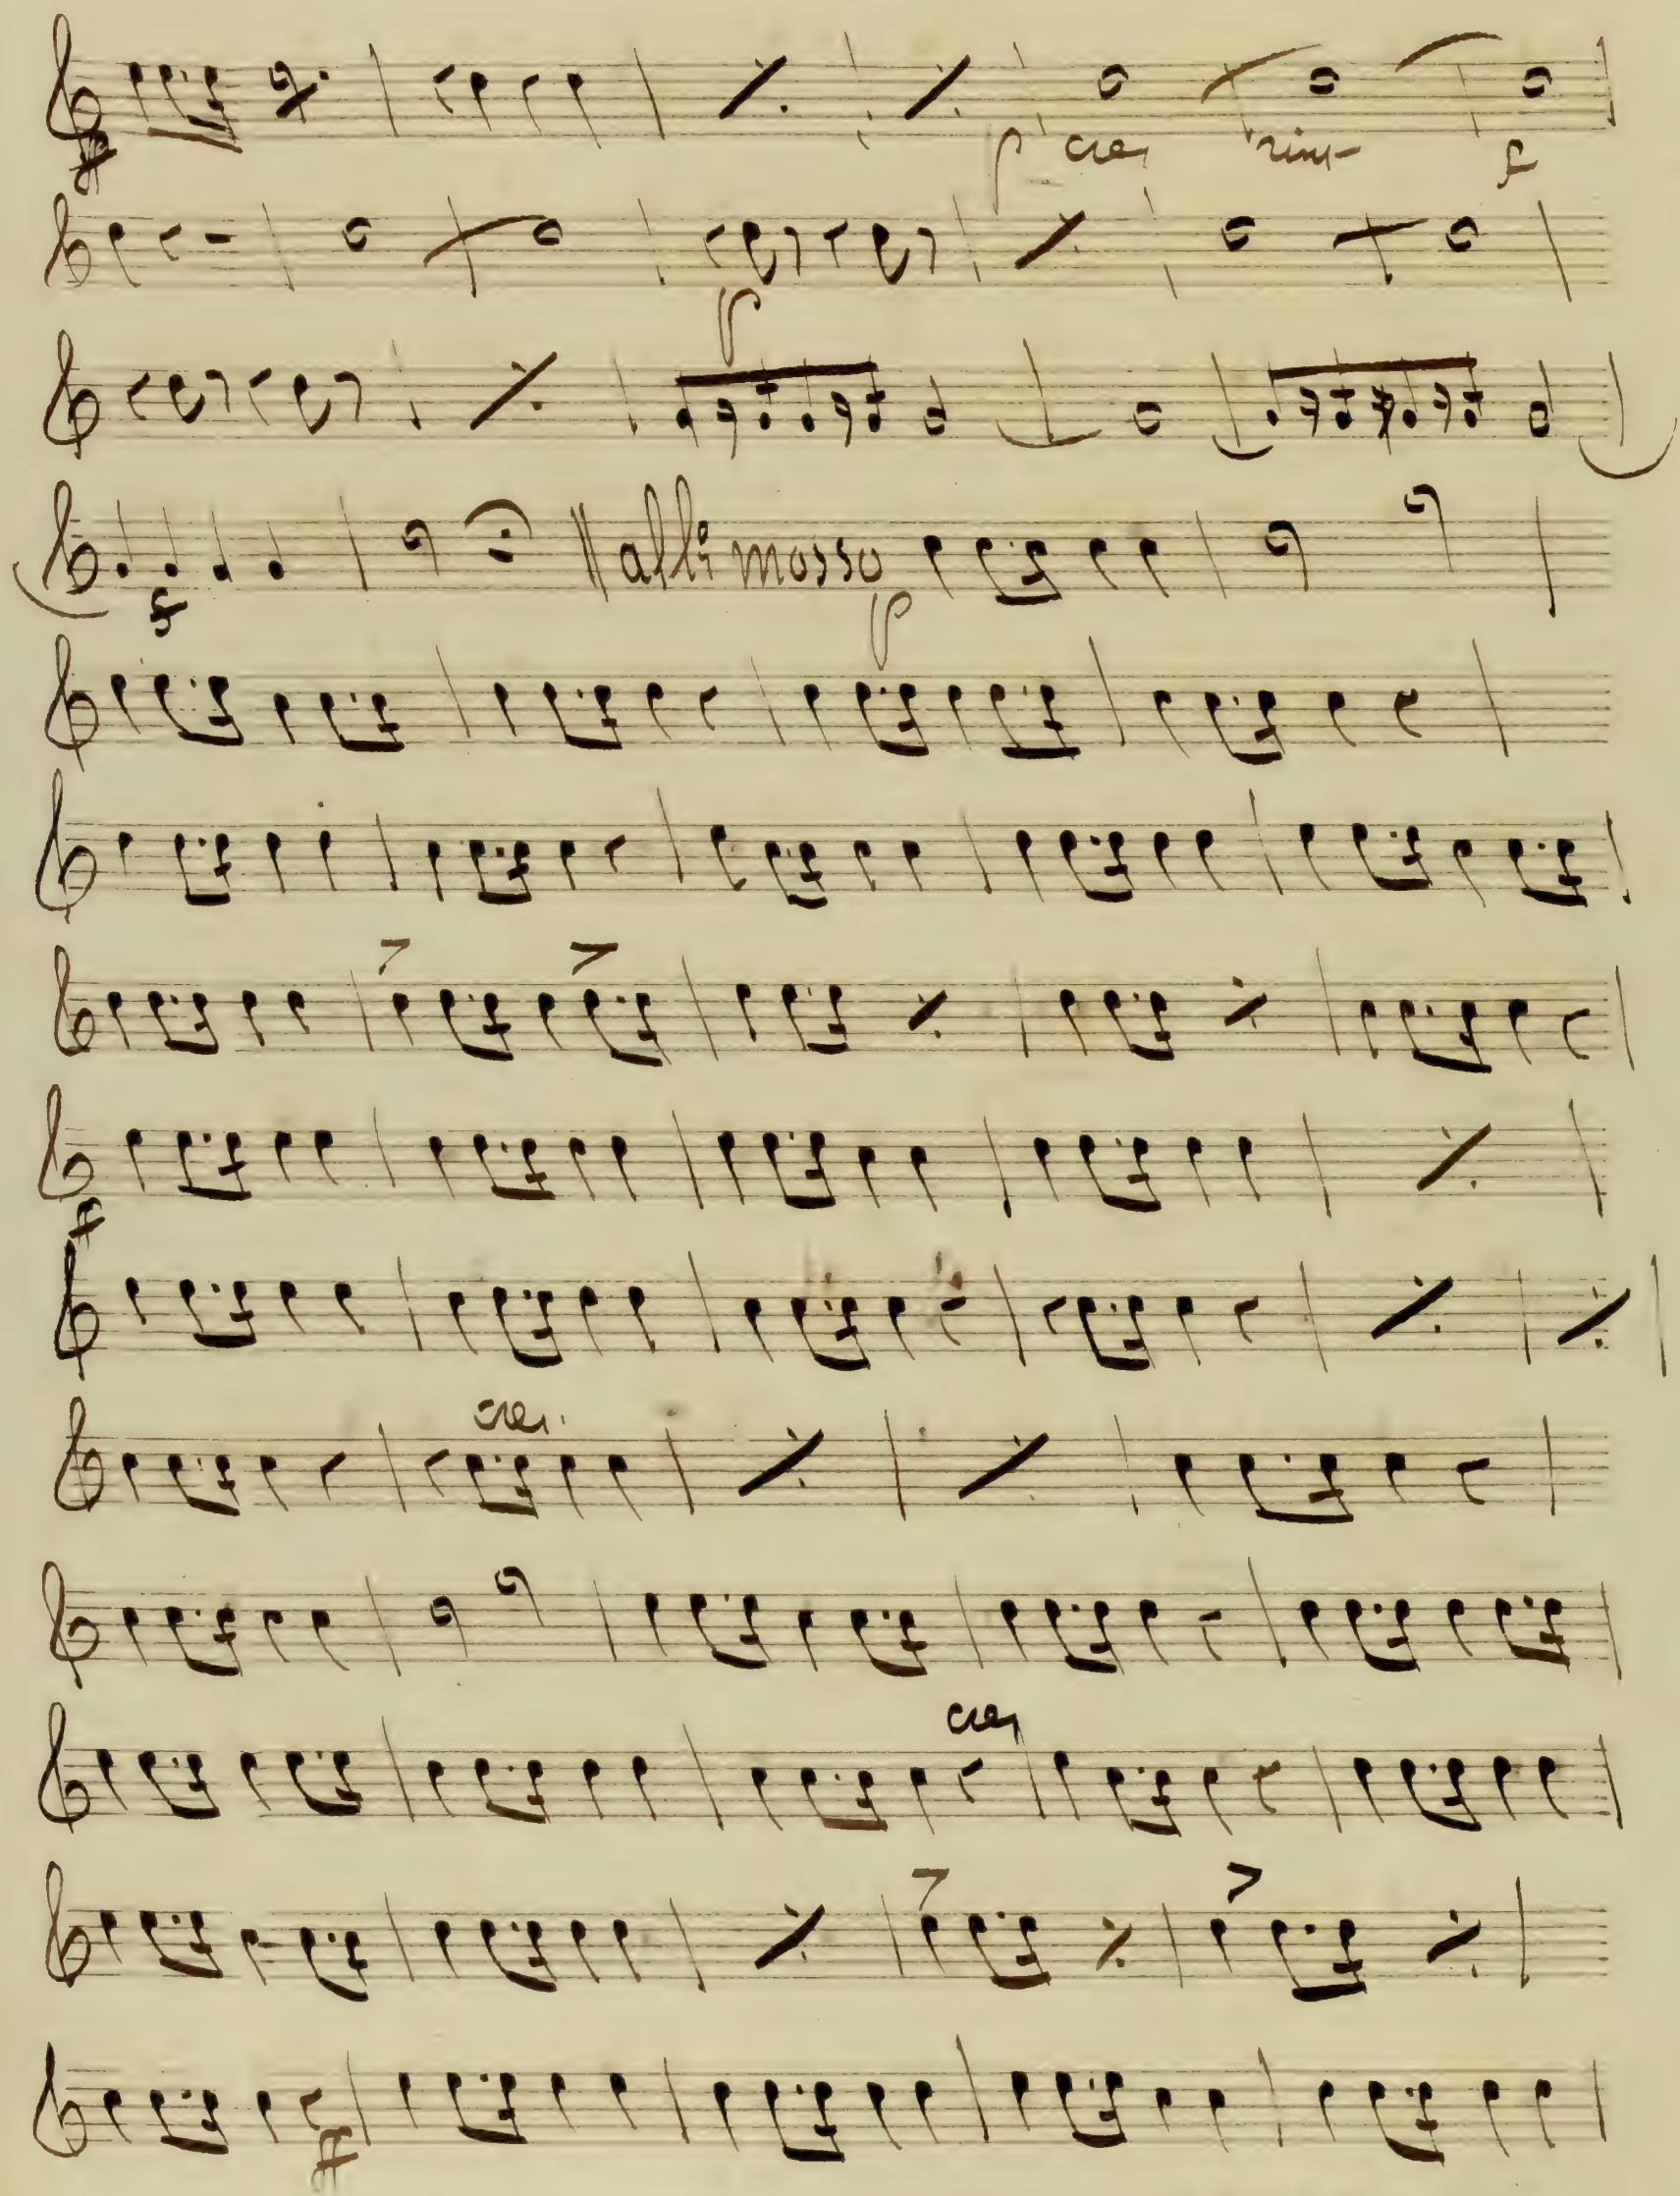 ff
p cres rinf f
p
all: mosso
f p
f
cres.
cres
ff